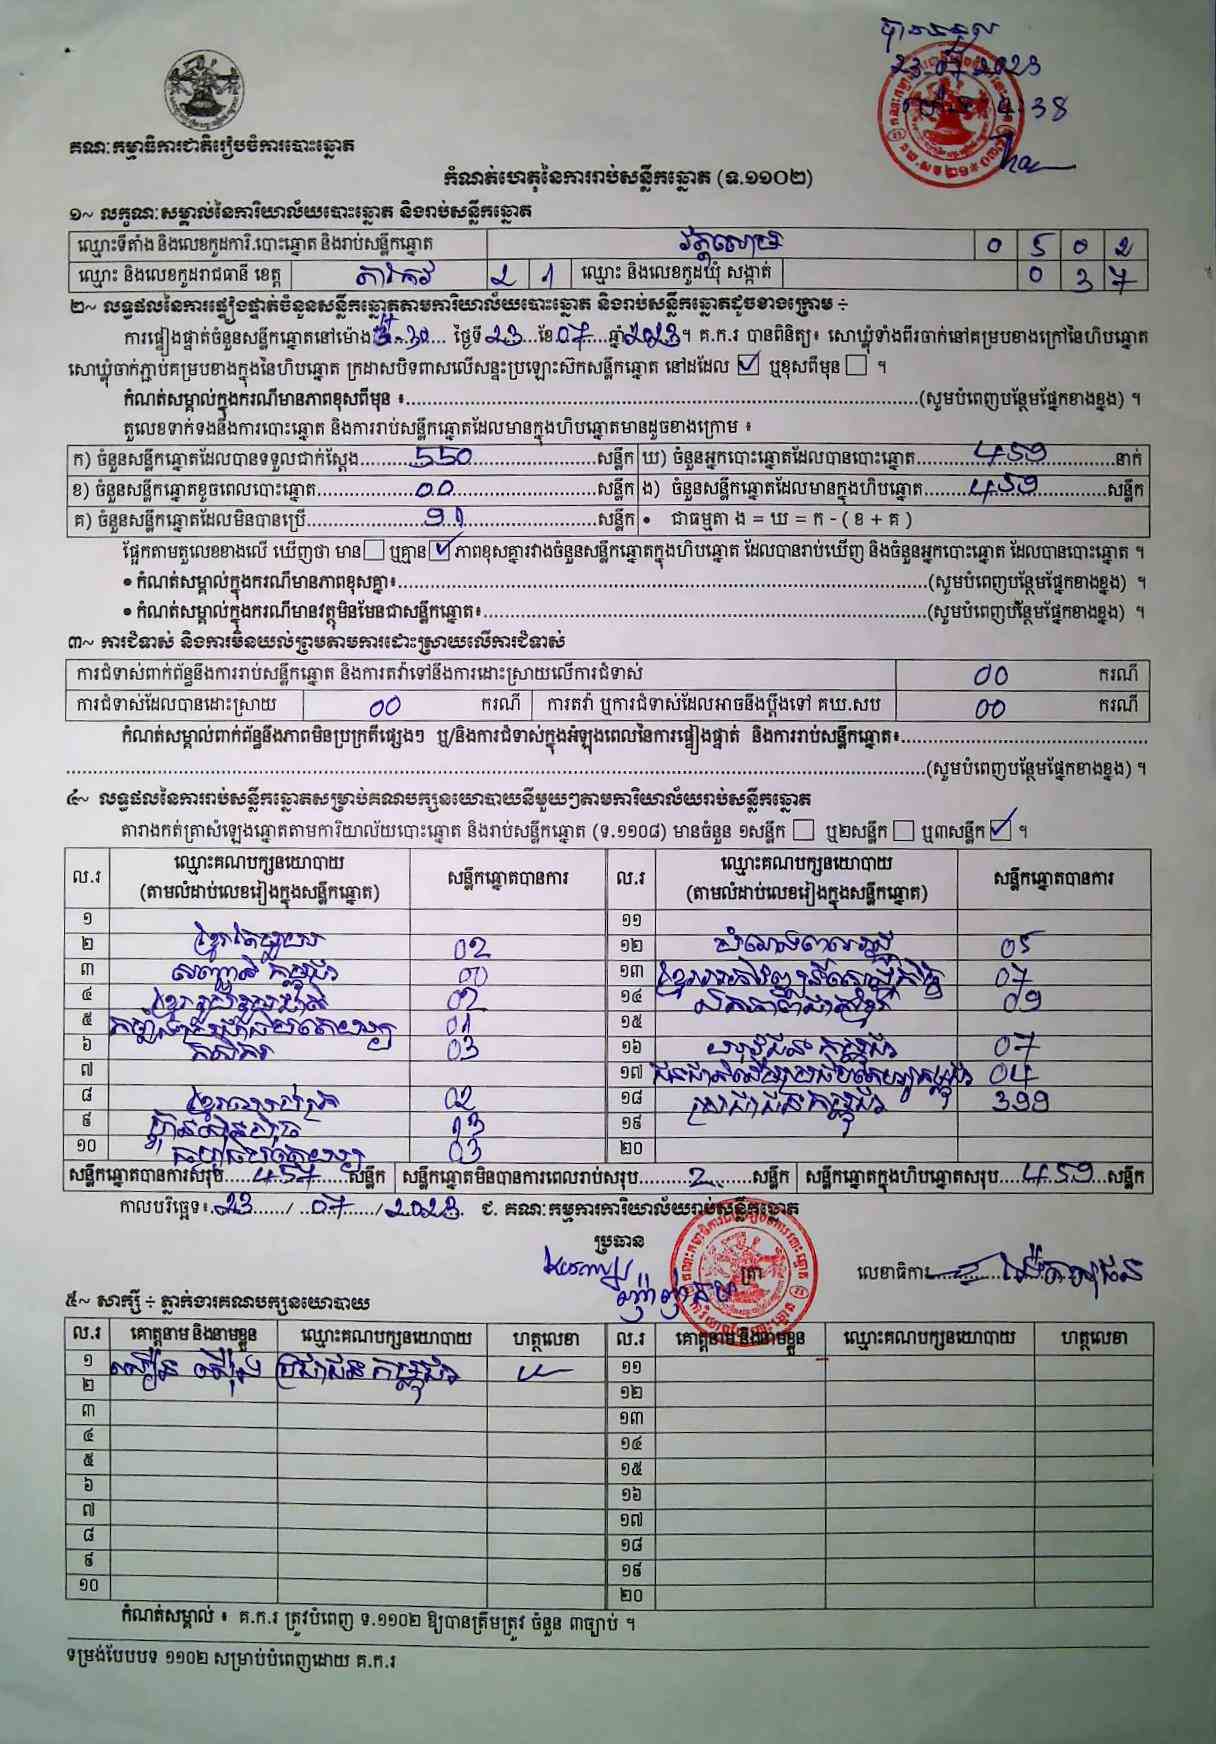 បានទទួល
23 07 2023
ម៉ោង 4:38
គណៈកម្មាធិការជាតិរៀបចំការបោះឆ្នោត
កំណត់ហេតុនៃការរាប់សន្លឹកឆ្នោត (ទ.១១០២)
១~ លក្ខណៈសម្គាល់នៃការិយាល័យបោះឆ្នោត និងរាប់សន្លឹកឆ្នោត
ឈ្មោះទីតាំង និងលេខកូដការិ.បោះឆ្នោត និងរាប់សន្លឹកឆ្នោត 0 5 0 2
ឈ្មោះ និងលេខកូដរាជធានី ខេត្ត តាកែវ 2 1 ឈ្មោះ និងលេខកូដឃុំ សង្កាត់ 0 3 7
២~ លទ្ធផលនៃការផ្ទៀងផ្ទាត់ចំនួនសន្លឹកឆ្នោតតាមការិយាល័យបោះឆ្នោត និងរាប់សន្លឹកឆ្នោតដូចខាងក្រោម ÷
ការផ្ទៀងផ្ទាត់ចំនួនសន្លឹកឆ្នោតនៅម៉ោង 3:30 ថ្ងៃទី 23 ខែ 07 ឆ្នាំ 2023 ។ គ.ក.រ បានពិនិត្យ៖ សោឃ្លុំទាំងពីរចាក់នៅគម្របខាងក្រៅនៃហិបឆ្នោត
សោឃ្លុំចាក់ភ្ជាប់គម្របខាងក្នុងនៃហិបឆ្នោត ក្រដាសបិទពាសលើសន្ទះប្រឡោះស៊កសន្លឹកឆ្នោត នៅដដែល ☑ ឬខុសពីមុន ☐ ។
កំណត់សម្គាល់ក្នុងករណីមានភាពខុសពីមុន ៖..........(សូមបំពេញបន្ថែមផ្នែកខាងខ្នង) ។
តួលេខទាក់ទងនឹងការបោះឆ្នោត និងការរាប់សន្លឹកឆ្នោតដែលមានក្នុងហិបឆ្នោតមានដូចខាងក្រោម ៖
ក) ចំនួនសន្លឹកឆ្នោតដែលបានទទួលជាក់ស្តែង..........550..........សន្លឹក ឃ) ចំនួនអ្នកបោះឆ្នោតដែលបានបោះឆ្នោត..........459..........នាក់
ខ) ចំនួនសន្លឹកឆ្នោតខូចពេលបោះឆ្នោត..........00..........សន្លឹក ង) ចំនួនសន្លឹកឆ្នោតដែលមានក្នុងហិបឆ្នោត..........459..........សន្លឹក
គ) ចំនួនសន្លឹកឆ្នោតដែលមិនបានប្រើ..........91..........សន្លឹក • ជាធម្មតា ង = ឃ = ក - ( ខ + គ )
ផ្អែកតាមតួលេខខាងលើ ឃើញថា មាន ☐ ឬគ្មាន ☑ ភាពខុសគ្នារវាងចំនួនសន្លឹកឆ្នោតក្នុងហិបឆ្នោត ដែលបានរាប់ឃើញ និងចំនួនអ្នកបោះឆ្នោត ដែលបានបោះឆ្នោត ។
• កំណត់សម្គាល់ក្នុងករណីមានភាពខុសគ្នា៖..........(សូមបំពេញបន្ថែមផ្នែកខាងខ្នង) ។
• កំណត់សម្គាល់ក្នុងករណីមានវត្ថុមិនមែនជាសន្លឹកឆ្នោត៖..........(សូមបំពេញបន្ថែមផ្នែកខាងខ្នង) ។
៣~ ការជំទាស់ និងការមិនយល់ព្រមតាមការដោះស្រាយលើការជំទាស់
ការជំទាស់ពាក់ព័ន្ធនឹងការរាប់សន្លឹកឆ្នោត និងការតវ៉ាទៅនឹងការដោះស្រាយលើការជំទាស់ 00 ករណី
ការជំទាស់ដែលបានដោះស្រាយ 00 ករណី ការតវ៉ា ឬការជំទាស់ដែលអាចនឹងប្តឹងទៅ គឃ.សប 00 ករណី
កំណត់សម្គាល់ពាក់ព័ន្ធនឹងភាពមិនប្រក្រតីផ្សេងៗ ឬ/និងការជំទាស់ក្នុងអំឡុងពេលនៃការផ្ទៀងផ្ទាត់ និងការរាប់សន្លឹកឆ្នោត៖..........
..........(សូមបំពេញបន្ថែមផ្នែកខាងខ្នង) ។
៤~ លទ្ធផលនៃការរាប់សន្លឹកឆ្នោតសម្រាប់គណបក្សនយោបាយនីមួយៗតាមការិយាល័យរាប់សន្លឹកឆ្នោត
តារាងកត់ត្រាសំឡេងឆ្នោតតាមការិយាល័យបោះឆ្នោត និងរាប់សន្លឹកឆ្នោត (ទ.១១០៨) មានចំនួន ១សន្លឹក ☐ ឬ២សន្លឹក ☐ ឬ៣សន្លឹក ☑ ។
ល.រ ឈ្មោះគណបក្សនយោបាយ (តាមលំដាប់លេខរៀងក្នុងសន្លឹកឆ្នោត) សន្លឹកឆ្នោតបានការ ល.រ ឈ្មោះគណបក្សនយោបាយ (តាមលំដាប់លេខរៀងក្នុងសន្លឹកឆ្នោត) សន្លឹកឆ្នោតបានការ
១ ១១
២ ខ្មែរតែមួយ 02 ១២ 05
៣ សញ្ជាតិកម្ពុជា ១៣ 07
៤ ខ្មែររួបរួមជាតិ 02 ១៤ 09
៥ 01 ១៥
៦ កសិករ 03 ១៦ យុវជនកម្ពុជា 07
៧ ១៧ 04
៨ 02 ១៨ ប្រជាជនកម្ពុជា 399
៩ ហ្វ៊ុនស៊ិនប៉ិច 13 ១៩
១០ 03 ២០
សន្លឹកឆ្នោតបានការសរុប.....457.....សន្លឹក សន្លឹកឆ្នោតមិនបានការពេលរាប់សរុប.....2.....សន្លឹក សន្លឹកឆ្នោតក្នុងហិបឆ្នោតសរុប.....459.....សន្លឹក
កាលបរិច្ឆេទ៖ 23 / 07 / 2023. ជ. គណៈកម្មការការិយាល័យរាប់សន្លឹកឆ្នោត
ប្រធាន
ត្រា លេខាធិការ
៥~ សាក្សី ÷ ភ្នាក់ងារគណបក្សនយោបាយ
ល.រ គោត្តនាម និងនាមខ្លួន ឈ្មោះគណបក្សនយោបាយ ហត្ថលេខា ល.រ គោត្តនាម និងនាមខ្លួន ឈ្មោះគណបក្សនយោបាយ ហត្ថលេខា
១ ប្រជាជនកម្ពុជា ១១
២ ១២
៣ ១៣
៤ ១៤
៥ ១៥
៦ ១៦
៧ ១៧
៨ ១៨
៩ ១៩
១០ ២០
កំណត់សម្គាល់ ៖ គ.ក.រ ត្រូវបំពេញ ទ.១១០២ ឱ្យបានត្រឹមត្រូវ ចំនួន ៣ច្បាប់ ។
ទម្រង់បែបបទ ១១០២ សម្រាប់បំពេញដោយ គ.ក.រ